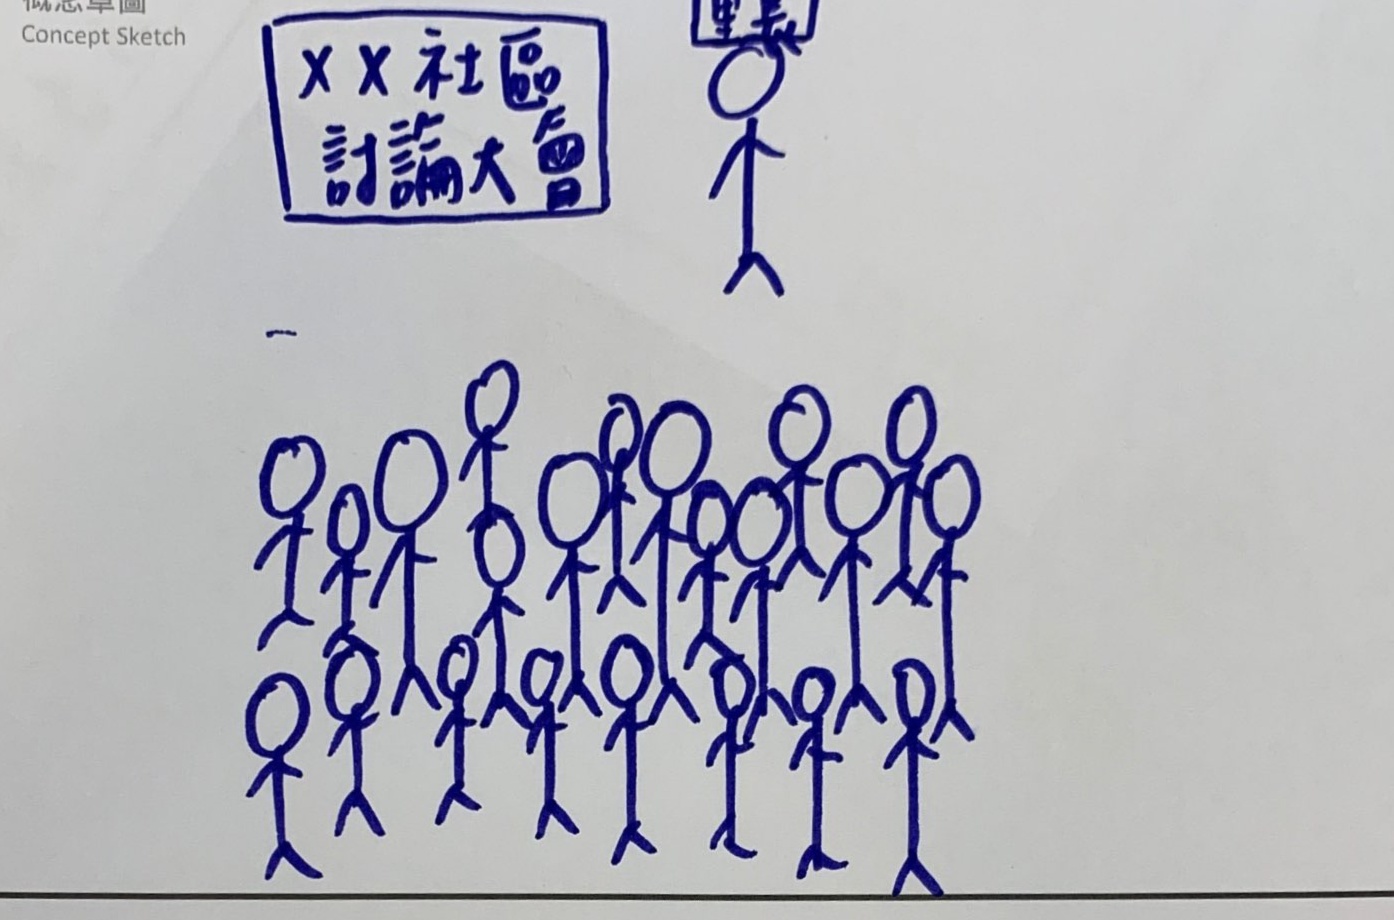 概念草圖
Concept Sketch
里長
XX社區
討論大會